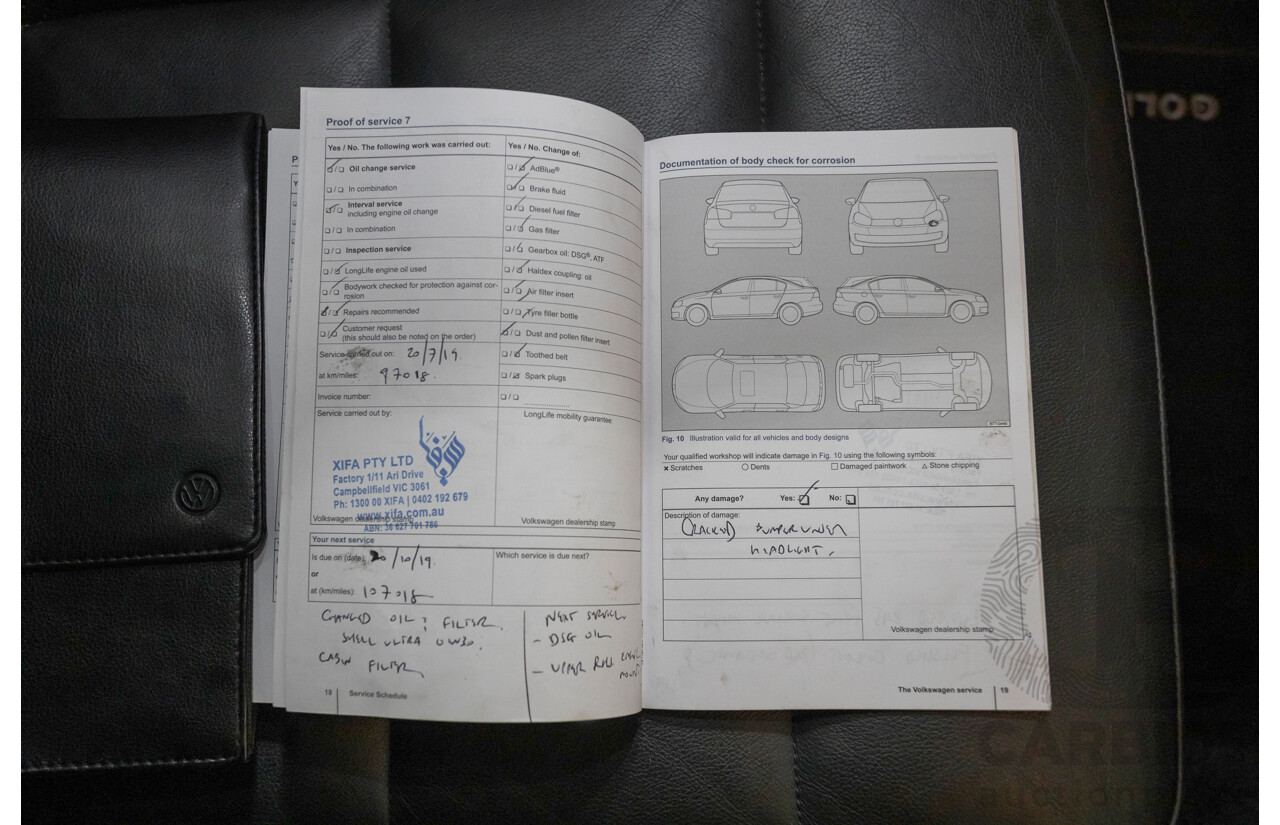 Proof of service 7
Yes / No. The following work was carried out:
Oil change service
In combination
Interval service
including engine oil change
In combination
Inspection service
LongLife engine oil used
Bodywork checked for protection against cor-
rosion
Repairs recommended
Customer request
(this should also be noted on the order)
Service carried out on: 20/7/19.
at km/miles: 97018.
Invoice number:
Service carried out by:
XIFA PTY LTD
Factory 1/11 Ari Drive
Campbellfield VIC 3061
Ph: 1300 00 XIFA | 0402 192 679
www.xifa.com.au
Volkswagen dealership stamp
ABN: 36 627 701 786
Yes / No. Change of:
AdBlue®
Brake fluid
Diesel fuel filter
Gas filter
Gearbox oil: DSG®, ATF
Haldex coupling: oil
Air filter insert
Tyre filler bottle
Dust and pollen filter insert
Toothed belt
Spark plugs
LongLife mobility guarantee:
Volkswagen dealership stamp
Your next service
Is due on (date): 20/10/19.
or
at (km/miles): 107018
Which service is due next?
CHANGED OIL & FILTER.
SHELL ULTRA 0W30.
CABIN FILTER
NEXT SERVICE
- DSG OIL
- UPPER ROLL ENGINE
MOUNT
18 Service Schedule
Documentation of body check for corrosion
Fig. 10 Illustration valid for all vehicles and body designs
Your qualified workshop will indicate damage in Fig. 10 using the following symbols:
× Scratches ○ Dents □ Damaged paintwork △ Stone chipping
Any damage? Yes: No:
Description of damage:
CRACKED BUMPER UNDER
HEADLIGHT.
Volkswagen dealership stamp
The Volkswagen service 19
GOL
CARB
auction